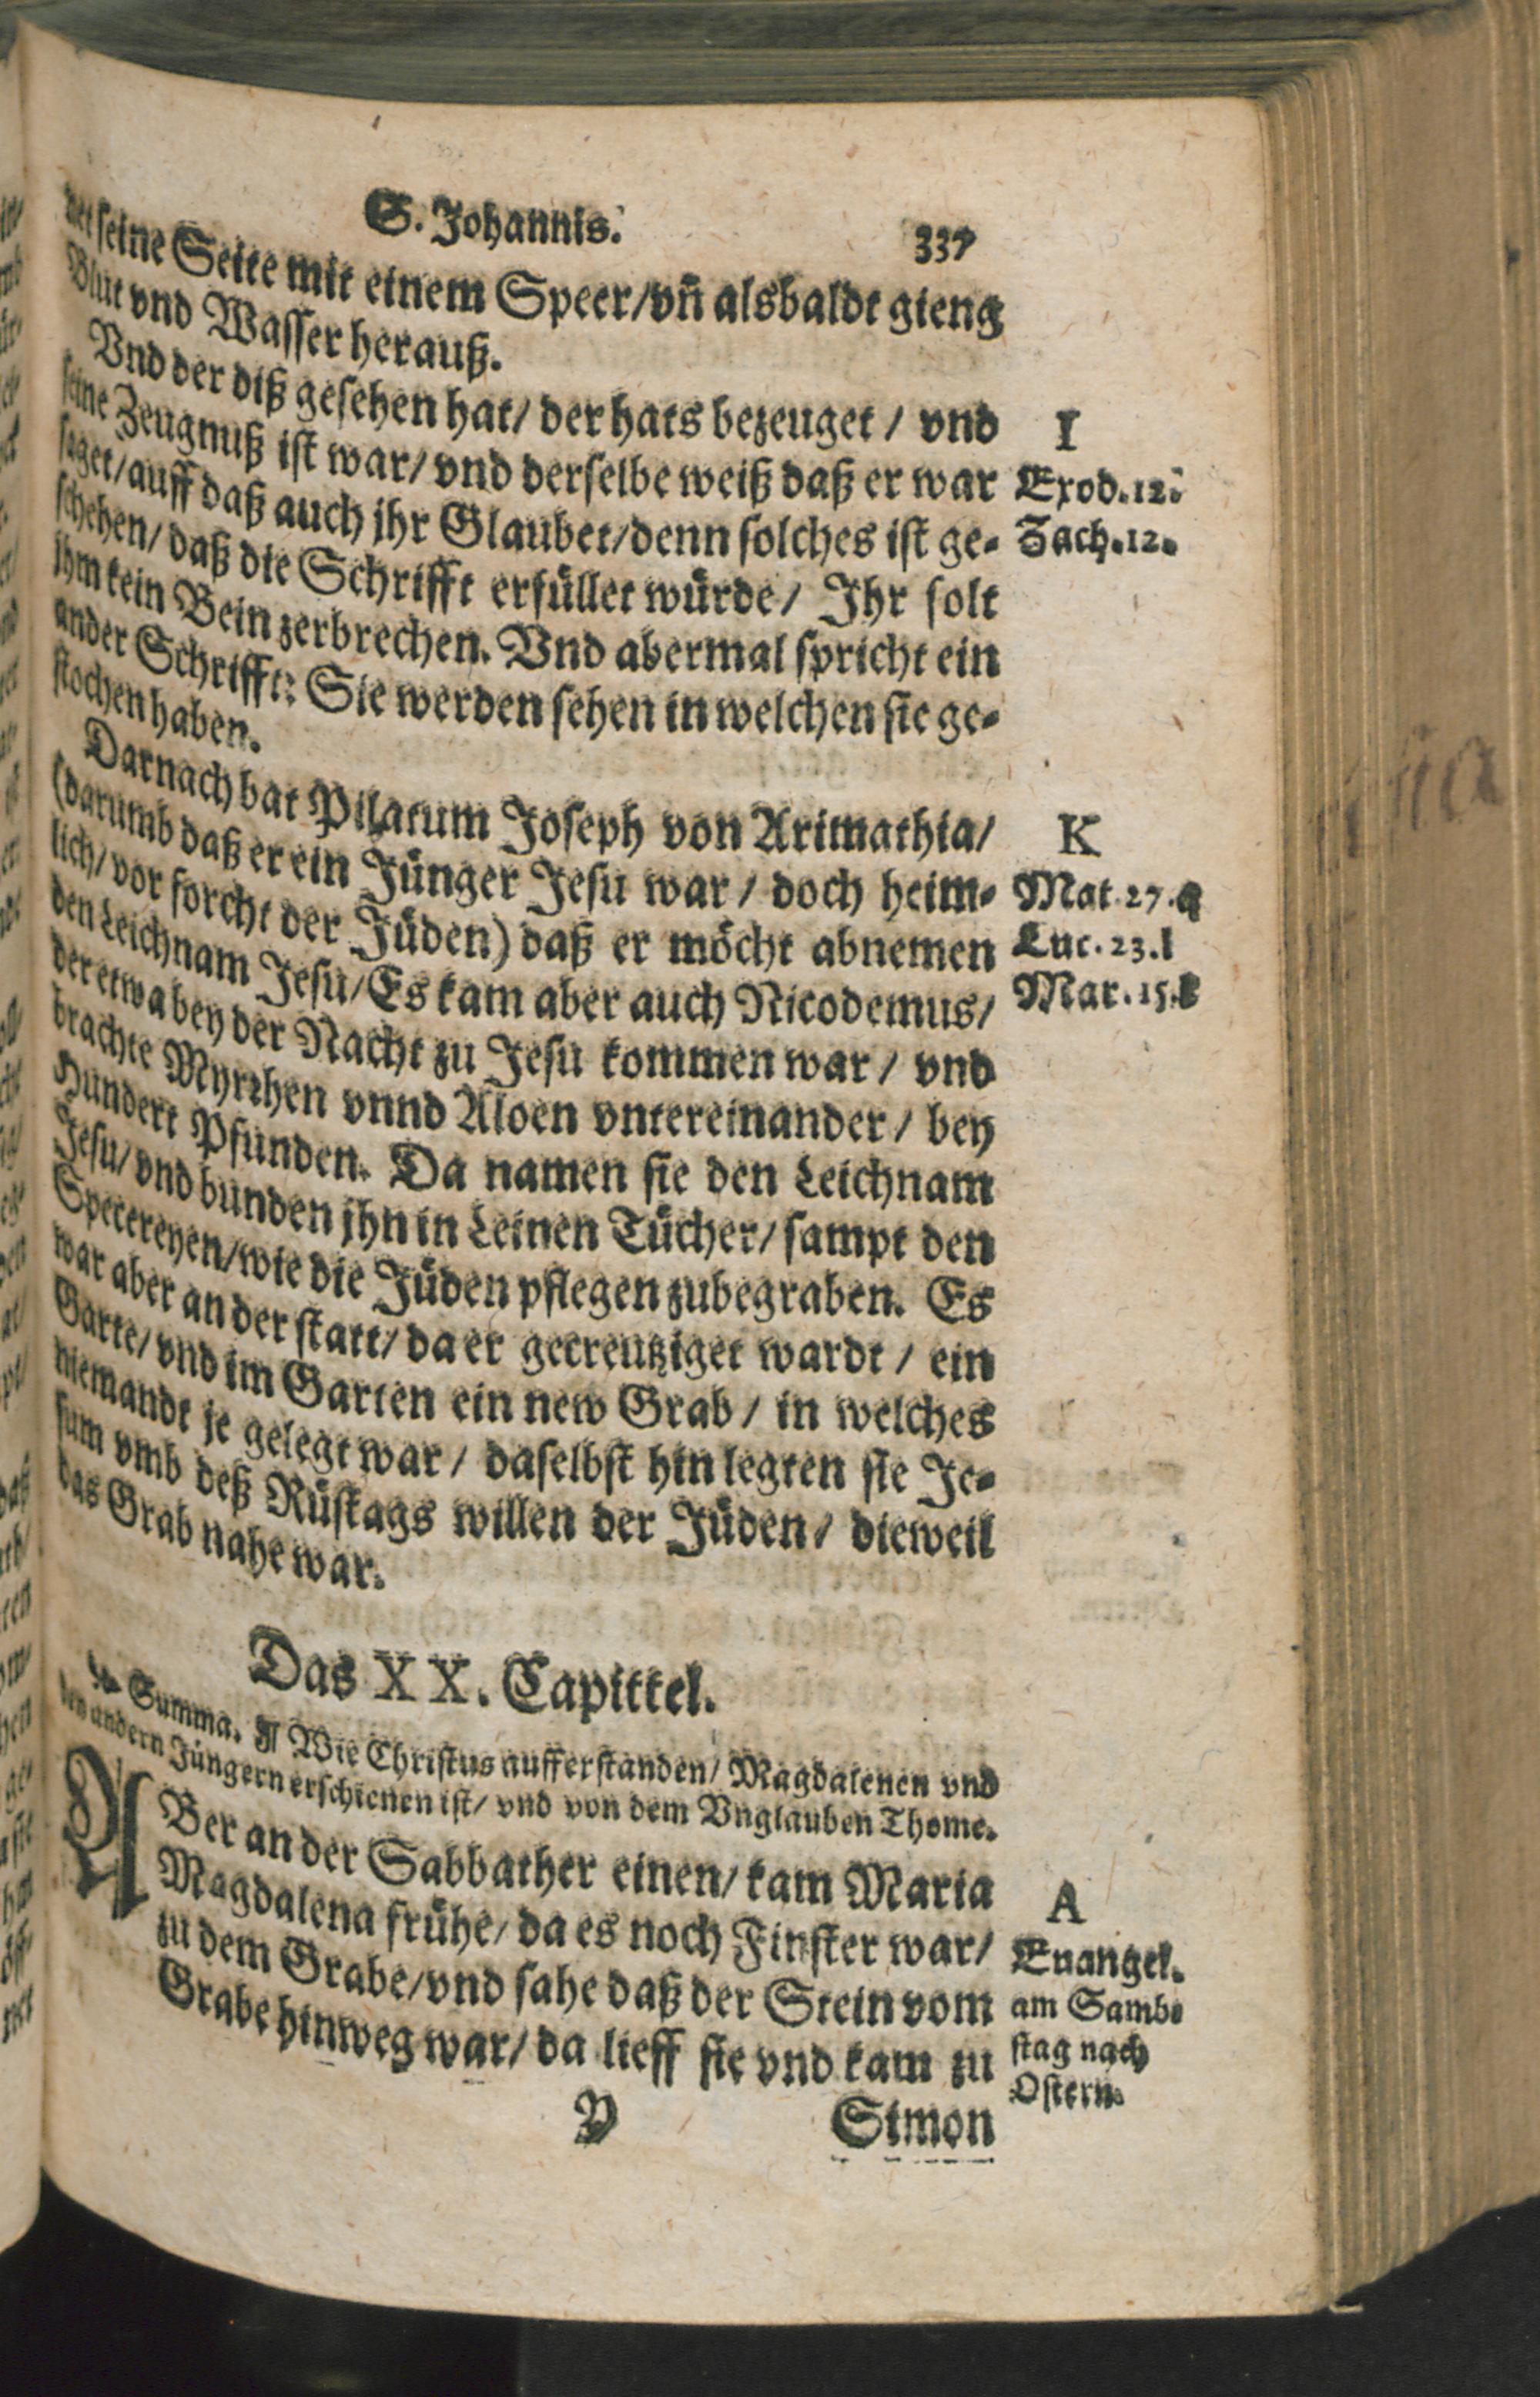 S. Johannis. 337
net seine Seite mit einem Speer/vn̄ alsbaldt gieng
Blut vnd Wasser herauß.
Vnd der diß gesehen hat/ der hats bezeuget / vnd
seine Zeugnuß ist war/ vnd derselbe weiß daß er war
saget/auff daß auch jhr Glaubet/denn solches ist ge-
schehen/ daß die Schrifft erfüllet würde/ Jhr solt
jhm kein Bein zerbrechen. Vnd abermal spricht ein
ander Schrifft: Sie werden sehen in welchen sie ge-
stochen haben.
I
Exod.12.
Zach.12.
Darnach bat Pilatum Joseph von Arimathia/
(darumb daß er ein Jünger Jesu war / doch heim-
lich/ vor forcht der Jüden) daß er möcht abnemen
den Leichnam Jesu/Es kam aber auch Nicodemus/
der etwa bey der Nacht zu Jesu kommen war / vnd
brachte Myrrhen vnnd Aloen vntereinander / bey
Hundert Pfunden. Da namen sie den Leichnam
Jesu/ vnd bunden jhn in Leinen Tücher/ sampt den
Specereyen/wie die Jüden pflegen zubegraben. Es
war aber an der statt/ da er gecreutziget wardt / ein
Garte/ vnd im Garten ein new Grab / in welches
niemandt je gelegt war / daselbst hin legten sie Je-
sum vmb deß Rüstags willen der Jüden / dieweil
das Grab nahe war.
K
Mat.27.q
Luc.23.l
Mar.15.k
Das XX. Capittel.
Summa. ¶ Wie Christus aufferstanden/ Magdalenen vnd
den andern Jüngern erschienen ist/ vnd von dem Vnglauben Thome.
ABer an der Sabbather einen/ kam Maria
Magdalena frühe/ da es noch Finster war/
zu dem Grabe/vnd sahe daß der Stein vom
Grabe hinweg war/ da lieff sie vnd kam zu
A
Euangel.
am Sambs
stag nach
Ostern.
Y Simon